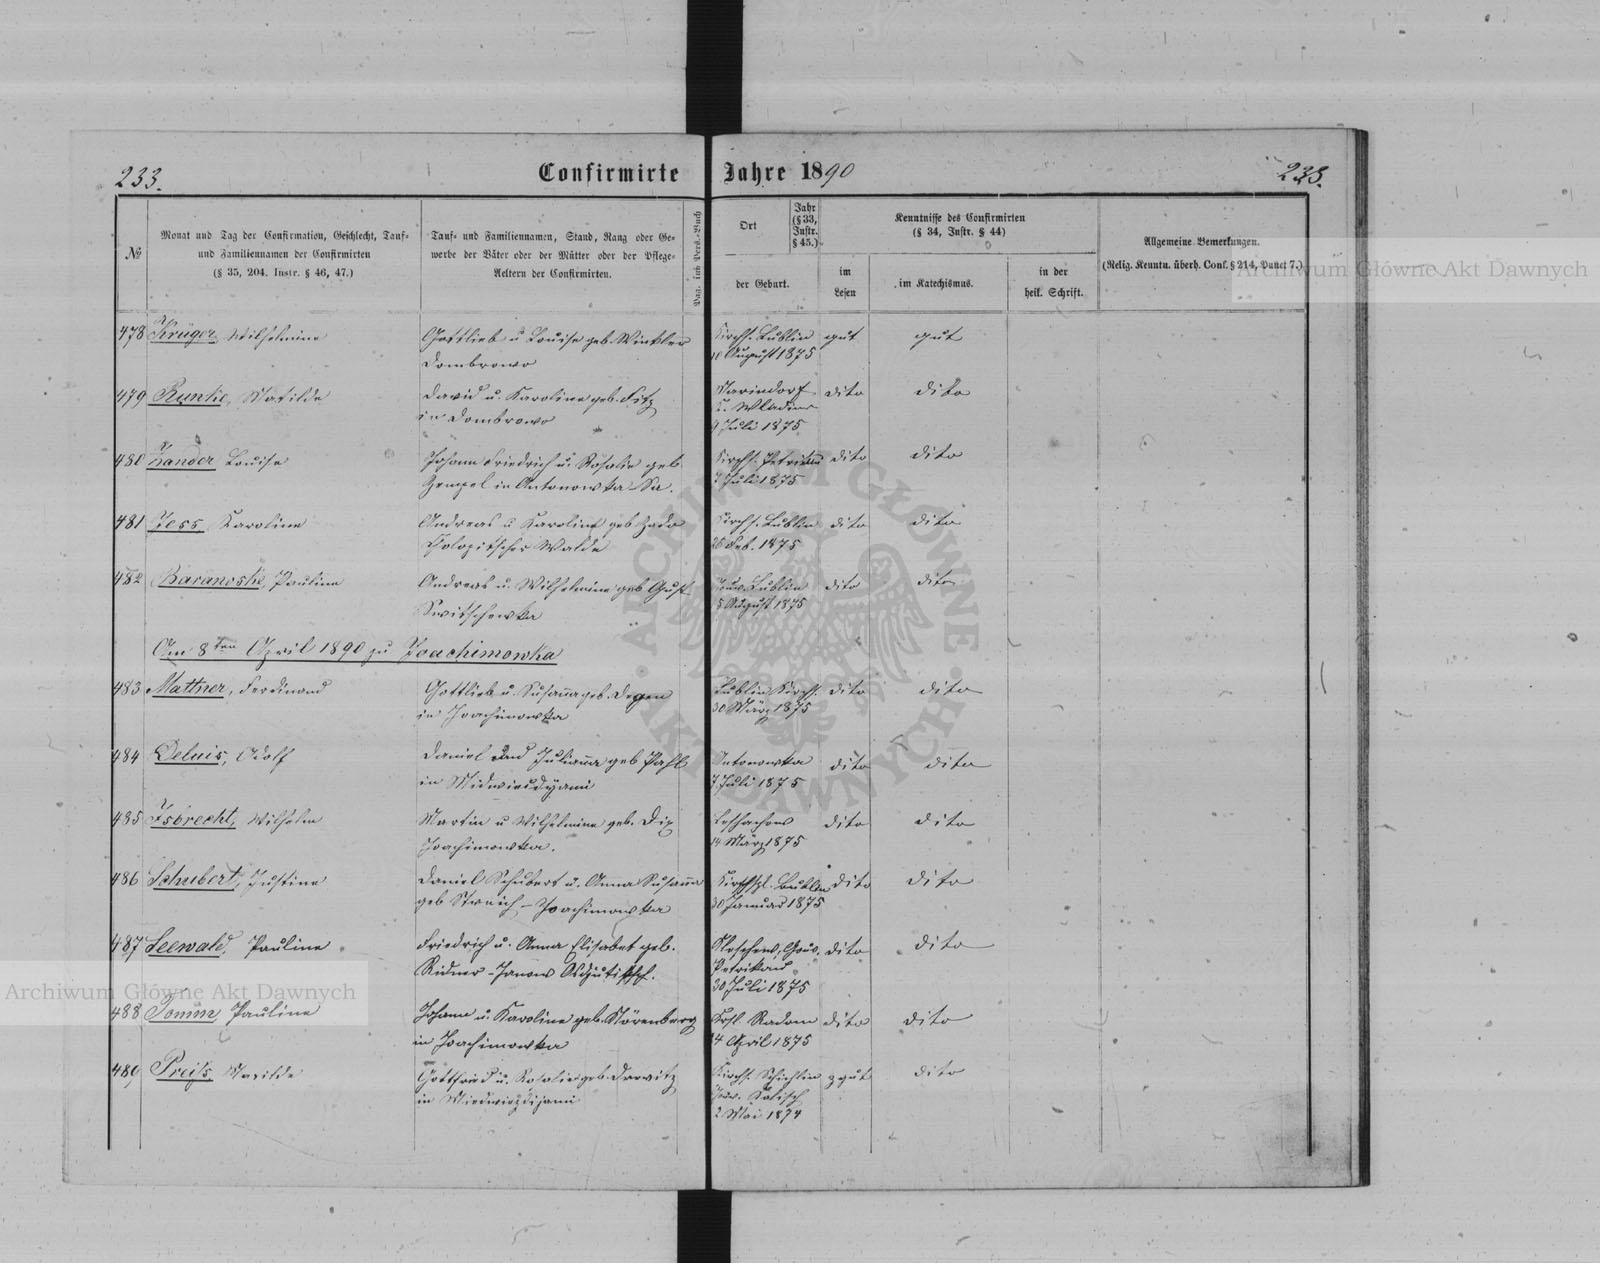 233.
Confirmirte Jahre 1890
233.
№
Monat und Tag der Confirmation, Geschlecht, Tauf-
und Familiennamen der Confirmirten
(§ 35, 204. Instr. § 46, 47.)
Tauf- und Familiennamen, Stand, Rang oder Ge-
werbe der Väter oder der Mütter oder der Pflege-
Aeltern der Confirmirten.
Pag. im Pers.-Buch
Ort
Jahr
(§ 33,
Instr.
§ 45.)
der Geburt.
Kenntnisse des Confirmirten
(§ 34, Instr. § 44)
im
Lesen
im Katechismus.
in der
heil. Schrift.
Allgemeine Bemerkungen.
(Relig. Kenntn. überh. Conf. § 214, Punct 7.)
478 Krüger, Wilhelmine
Gottlieb u Louise geb. Winkler
Dombrowo
Kirchs. Lublin
10 August 1875
gut
gut
479 Runke, Matilde
David u. Karoline geb. Fitz
in Dombrowo
Mariendorf
9 Juli 1875
dito
dito
480 Zander Louise
Johann Friedrich u. Rosalie geb
in Antonowka
Kirchs. Petrikau
7 Juli 1875
dito
dito
481 Jess Karoline
Andreas u Karoline geb
Walde
Kirchs. Lublin
26 Feb. 1875
dito
dito
482 Baranoske, Pauline
Andreas u. Wilhelmine geb Gust
Switschewka
Gouv. Lublin
5 August 1875
dito
dito
Am 8ten April 1890 zu Joachimowka
483 Mattner, Ferdinand
Gottlieb u. Susanna geb. Degen
in Joachimowka
Lublin Kirchs.
30 März 1875
dito
dito
484 Deluis, Adolf
Daniel und Julianna geb Pahl
in
Antonowka
7 Juli 1875
dito
dito
485 Isbrecht, Wilhelm
Martin u Wilhelmine geb. Dix
Joachimowka.
14 März 1875
dito
dito
486 Schubert, Justine
Daniel Schubert u. Anna Susanna
geb Streich - Joachimowka
Kirchspl. Lublin
30 Januar 1875
dito
dito
487 Seewald, Pauline
Friedrich u. Anna Elisabet geb.
Ridner - Janow
Gouv.
Petrikau
30 Juli 1875
dito
dito
488 Tomm, Pauline
Johann u. Karoline geb. Nörenberg
in Joachimowka
Radom
14 April 1875
dito
dito
489 Preiss, Matilde
Gottfried u. Rosalie geb. Drewitz
in
Kirchs.
Gouv. Kalisch
2 Mai 1874
z gut
dito
Archiwum Główne Akt Dawnych
Archiwum Główne Akt Dawnych
ARCHIWUM GŁÓWNE AKT DAWNYCH